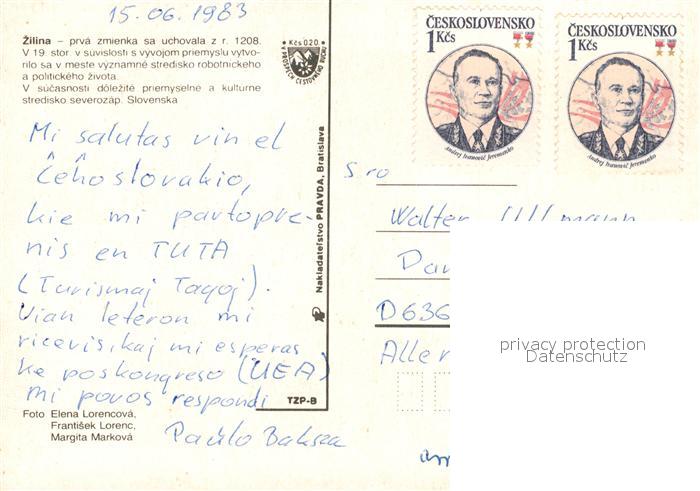 15.06.1983
Žilina – prvá zmienka sa uchovala z r. 1208.
V 19. stor. v súvislosti s vývojom priemyslu vytvo-
rilo sa v meste významné stredisko robotníckeho
a politického života.
V súčasnosti dôležité priemyselne a kulturne
stredisko severozáp. Slovenska
Kčs 0.20
V PROSPECH CESTOVNÉHO RUCHU
Mi salutas vin el
Ĉeĥoslovakio,
kie mi partopre-
nis en TUTA
(Turismaj Tagoj).
Vian leteron mi
ricevis, kaj mi esperas
ke poskongreso (UEA)
mi povos respondi
Foto Elena Lorencová,
František Lorenc,
Margita Marková
TZP-B
Nakladateľstvo PRAVDA, Bratislava
ČESKOSLOVENSKO
1 Kčs
Andrej Ivanovič Jeremenko
ČESKOSLOVENSKO
1 Kčs
Andrej Ivanovič Jeremenko
Sro
Walter Ullmann
D636
privacy protection
Datenschutz